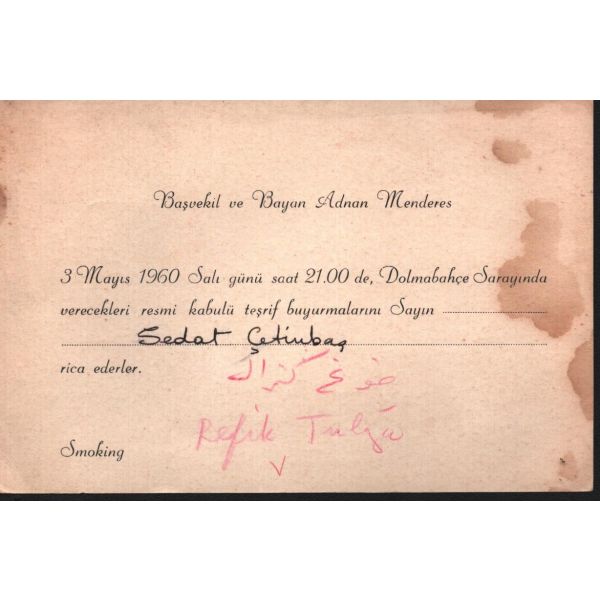 Başvekil ve Bayan Adnan Menderes
3 Mayıs 1960 Salı günü saat 21.00 de, Dolmabahçe Sarayında
verecekleri resmi kabulü teşrif buyurmalarını Sayın
Sedat Çetinbaş
rica ederler.
Refik Tulga
Smoking